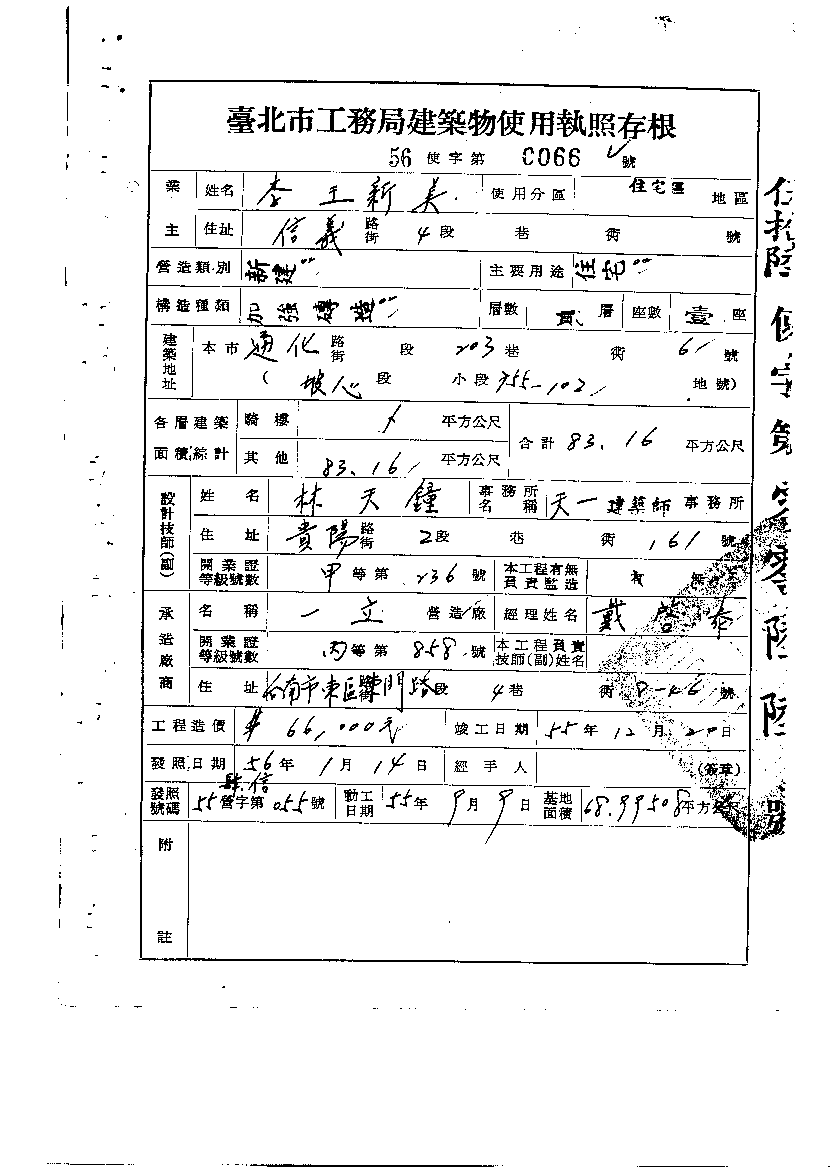 臺北市工務局建築物使用執照存根
56 使字第 0066 號
業主 姓名 李王新美 使用分區 住宅區 地區
住址 信義 路街 4段 巷 衖 號
營造類別 新建 主要用途 住宅
構造種類 加強磚造 層數 貳 層 座數 壹 座
建築地址 本市 通化 路街 段 203巷 衖 61 號
( 坡心 段 小段 755-102 地號)
各層建築面積綜計 騎樓 平方公尺 合計 83.16 平方公尺
其他 83.16 平方公尺
設計技師(副) 姓名 林天鐘 事務所名稱 天一建築師 事務所
住址 貴陽 路街 2段 巷 衖 161 號
開業證等級號數 甲 等第 236 號 本工程有無負責監造 有 無
承造廠商 名稱 一立 營造廠 經理姓名 戴啓泰
開業證等級號數 丙 等第 858 號 本工程負責技師(副)姓名
住址 台南市東區東門路 段 4巷 衖 號
工程造價 66,000元 竣工日期 55年12月20日
發照日期 56年1月14日 經手人 (簽章)
發照號碼 55營字第055號 動工日期 55年9月9日 基地面積 68.99508平方公尺
附註
伍拾陸使字第零零陸陸號